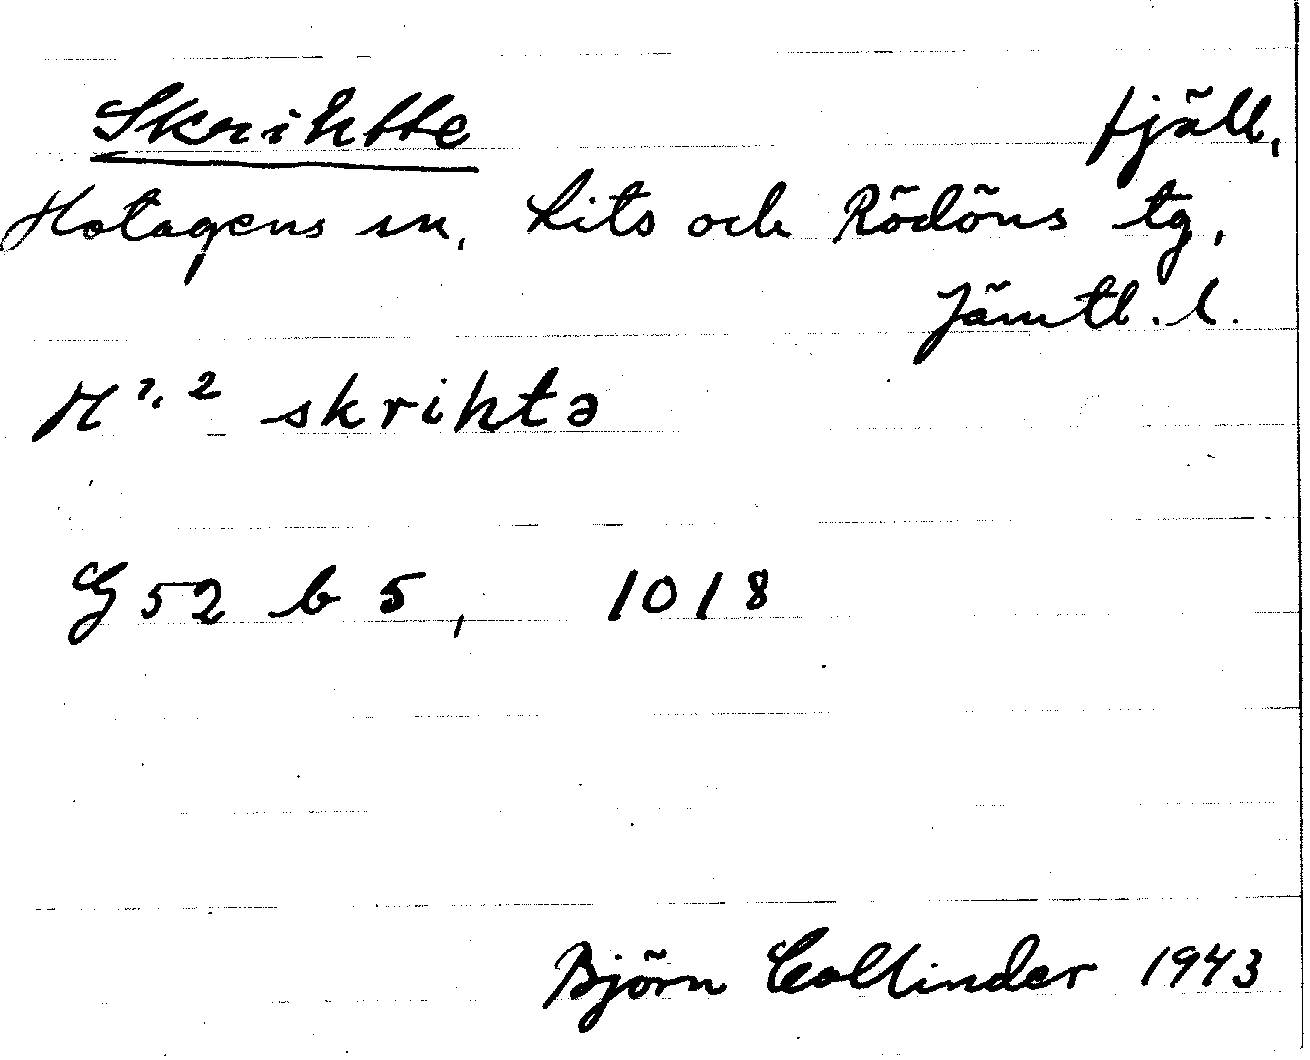 Skrihtte fjäll,
Hotagens sn, Lits och Rödöns tg,
Jämtl. l.
H 1, 2 skrihtə
G 52 b 5, 1018
Björn Collinder 1943